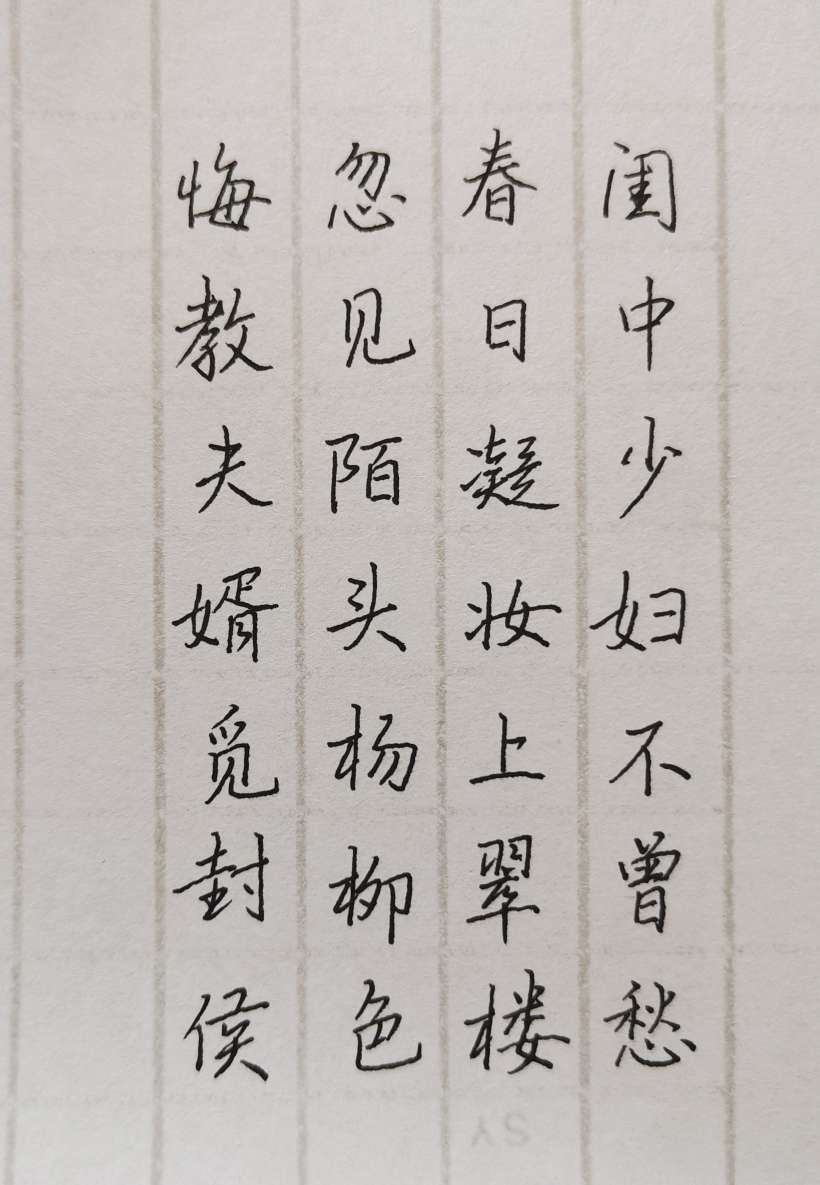 闺中少妇不曾愁
春日凝妆上翠楼
忽见陌头杨柳色
悔教夫婿觅封侯
SY